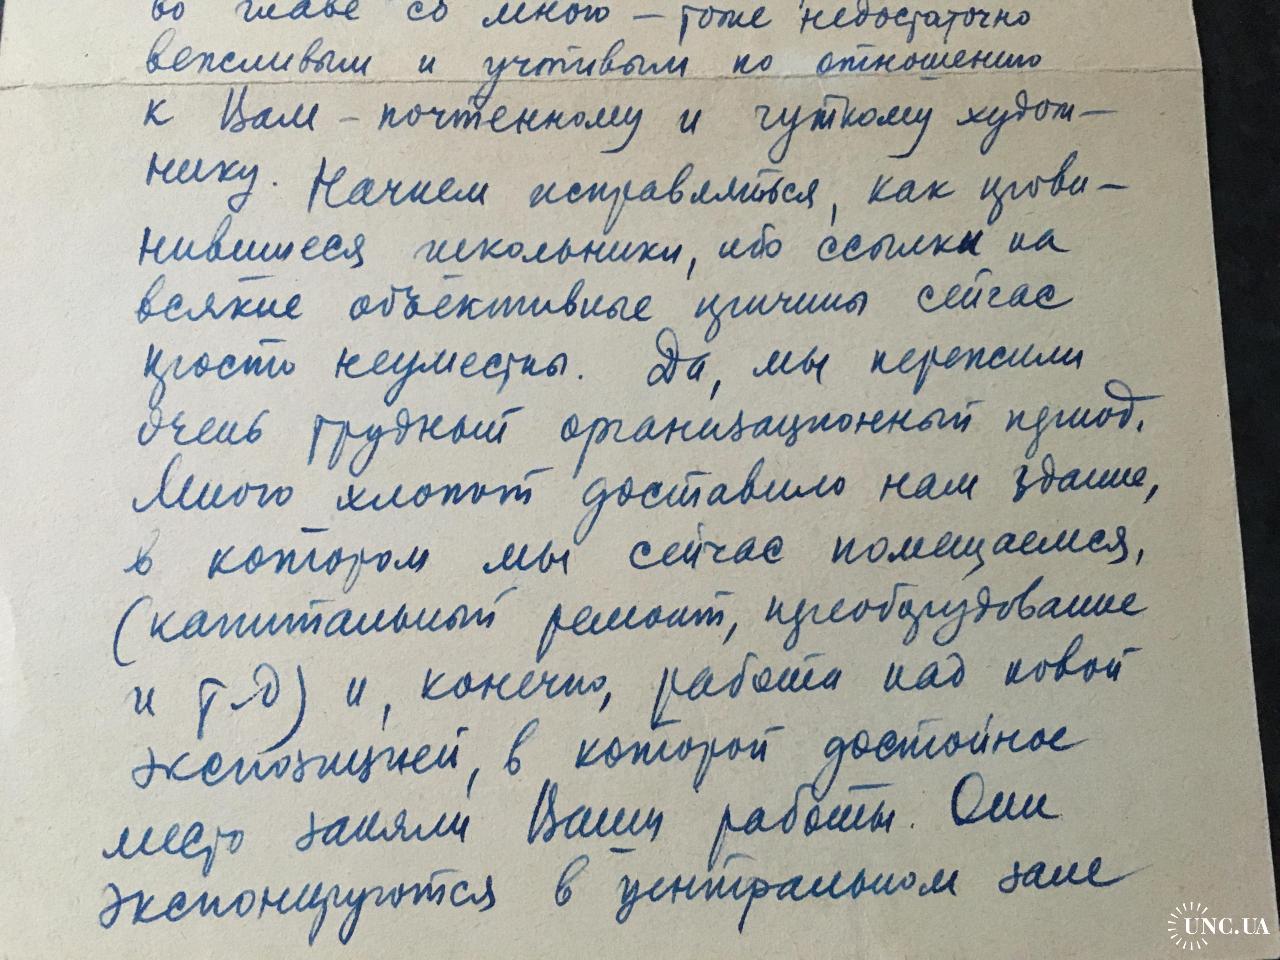 во главе со мною – тоже недостаточно
вежливым и учтивым по отношению
к Вам – почтенному и чуткому худож–
нику. Начнем исправляться, как прови–
нившиеся школьники, ибо ссылки на
всякие объективные причины сейчас
просто неуместны. Да, мы пережили
очень трудный организационный период.
Много хлопот доставило нам здание,
в котором мы сейчас помещаемся,
(капитальный ремонт, преоборудование
и т.д) и, конечно, работа над новой
экспозицией, в которой достойное
место заняли Ваши работы. Они
экспонируются в центральном зале
UNC.UA